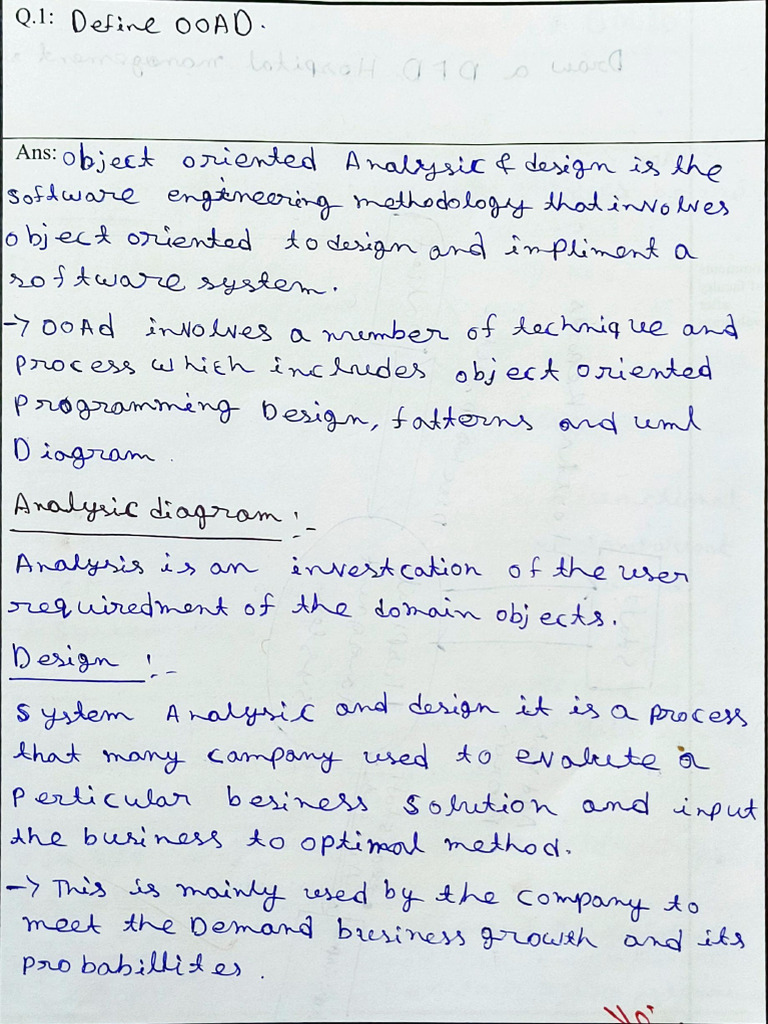 Q.1: Define OOAD.
Draw a DFD Hospital management
Ans: object oriented Analysic & design is the
software engineering methodology that involves
object oriented to design and impliment a
software system.
→ OOAd involves a number of technique and
process which includes object oriented
programming Design, fatterns and uml
Diagram.
Analysic diagram :-
Analysis is an investcation of the user
requiredment of the domain objects.
Design :-
System Analysic and design it is a process
that many company used to evalute a
perticular besiness solution and input
the business to optimal method.
→ This is mainly used by the company to
meet the Demand business growth and its
probabillites.